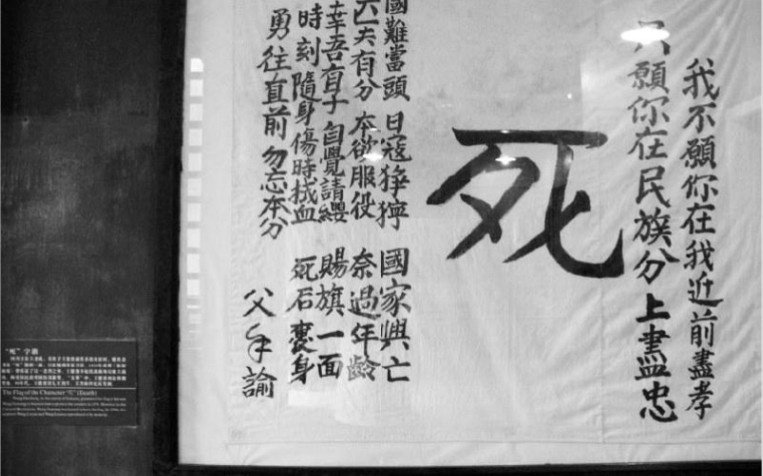 我不願你在我近前盡孝
只願你在民族分上盡忠
死
國難當頭 日寇猙獰 國家興亡
匹夫有分 本欲服役 奈過年齡
幸吾有子 自覺請纓 賜旗一面
時刻隨身 傷時拭血 死后裹身
勇往直前 勿忘本分
父手諭
“死”字旗
The Flag of the Character "死" (Death)